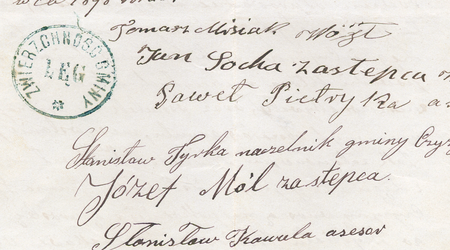 1898
ZWIERZCHNOŚĆ GMINY
ŁĘG
Tomasz Misiak Wójt
Jan Socha zastępca
Paweł Pietryka
Stanisław Tyrka naczelnik gminy
Józef Mól zastępca.
Stanisław Kawula asesor